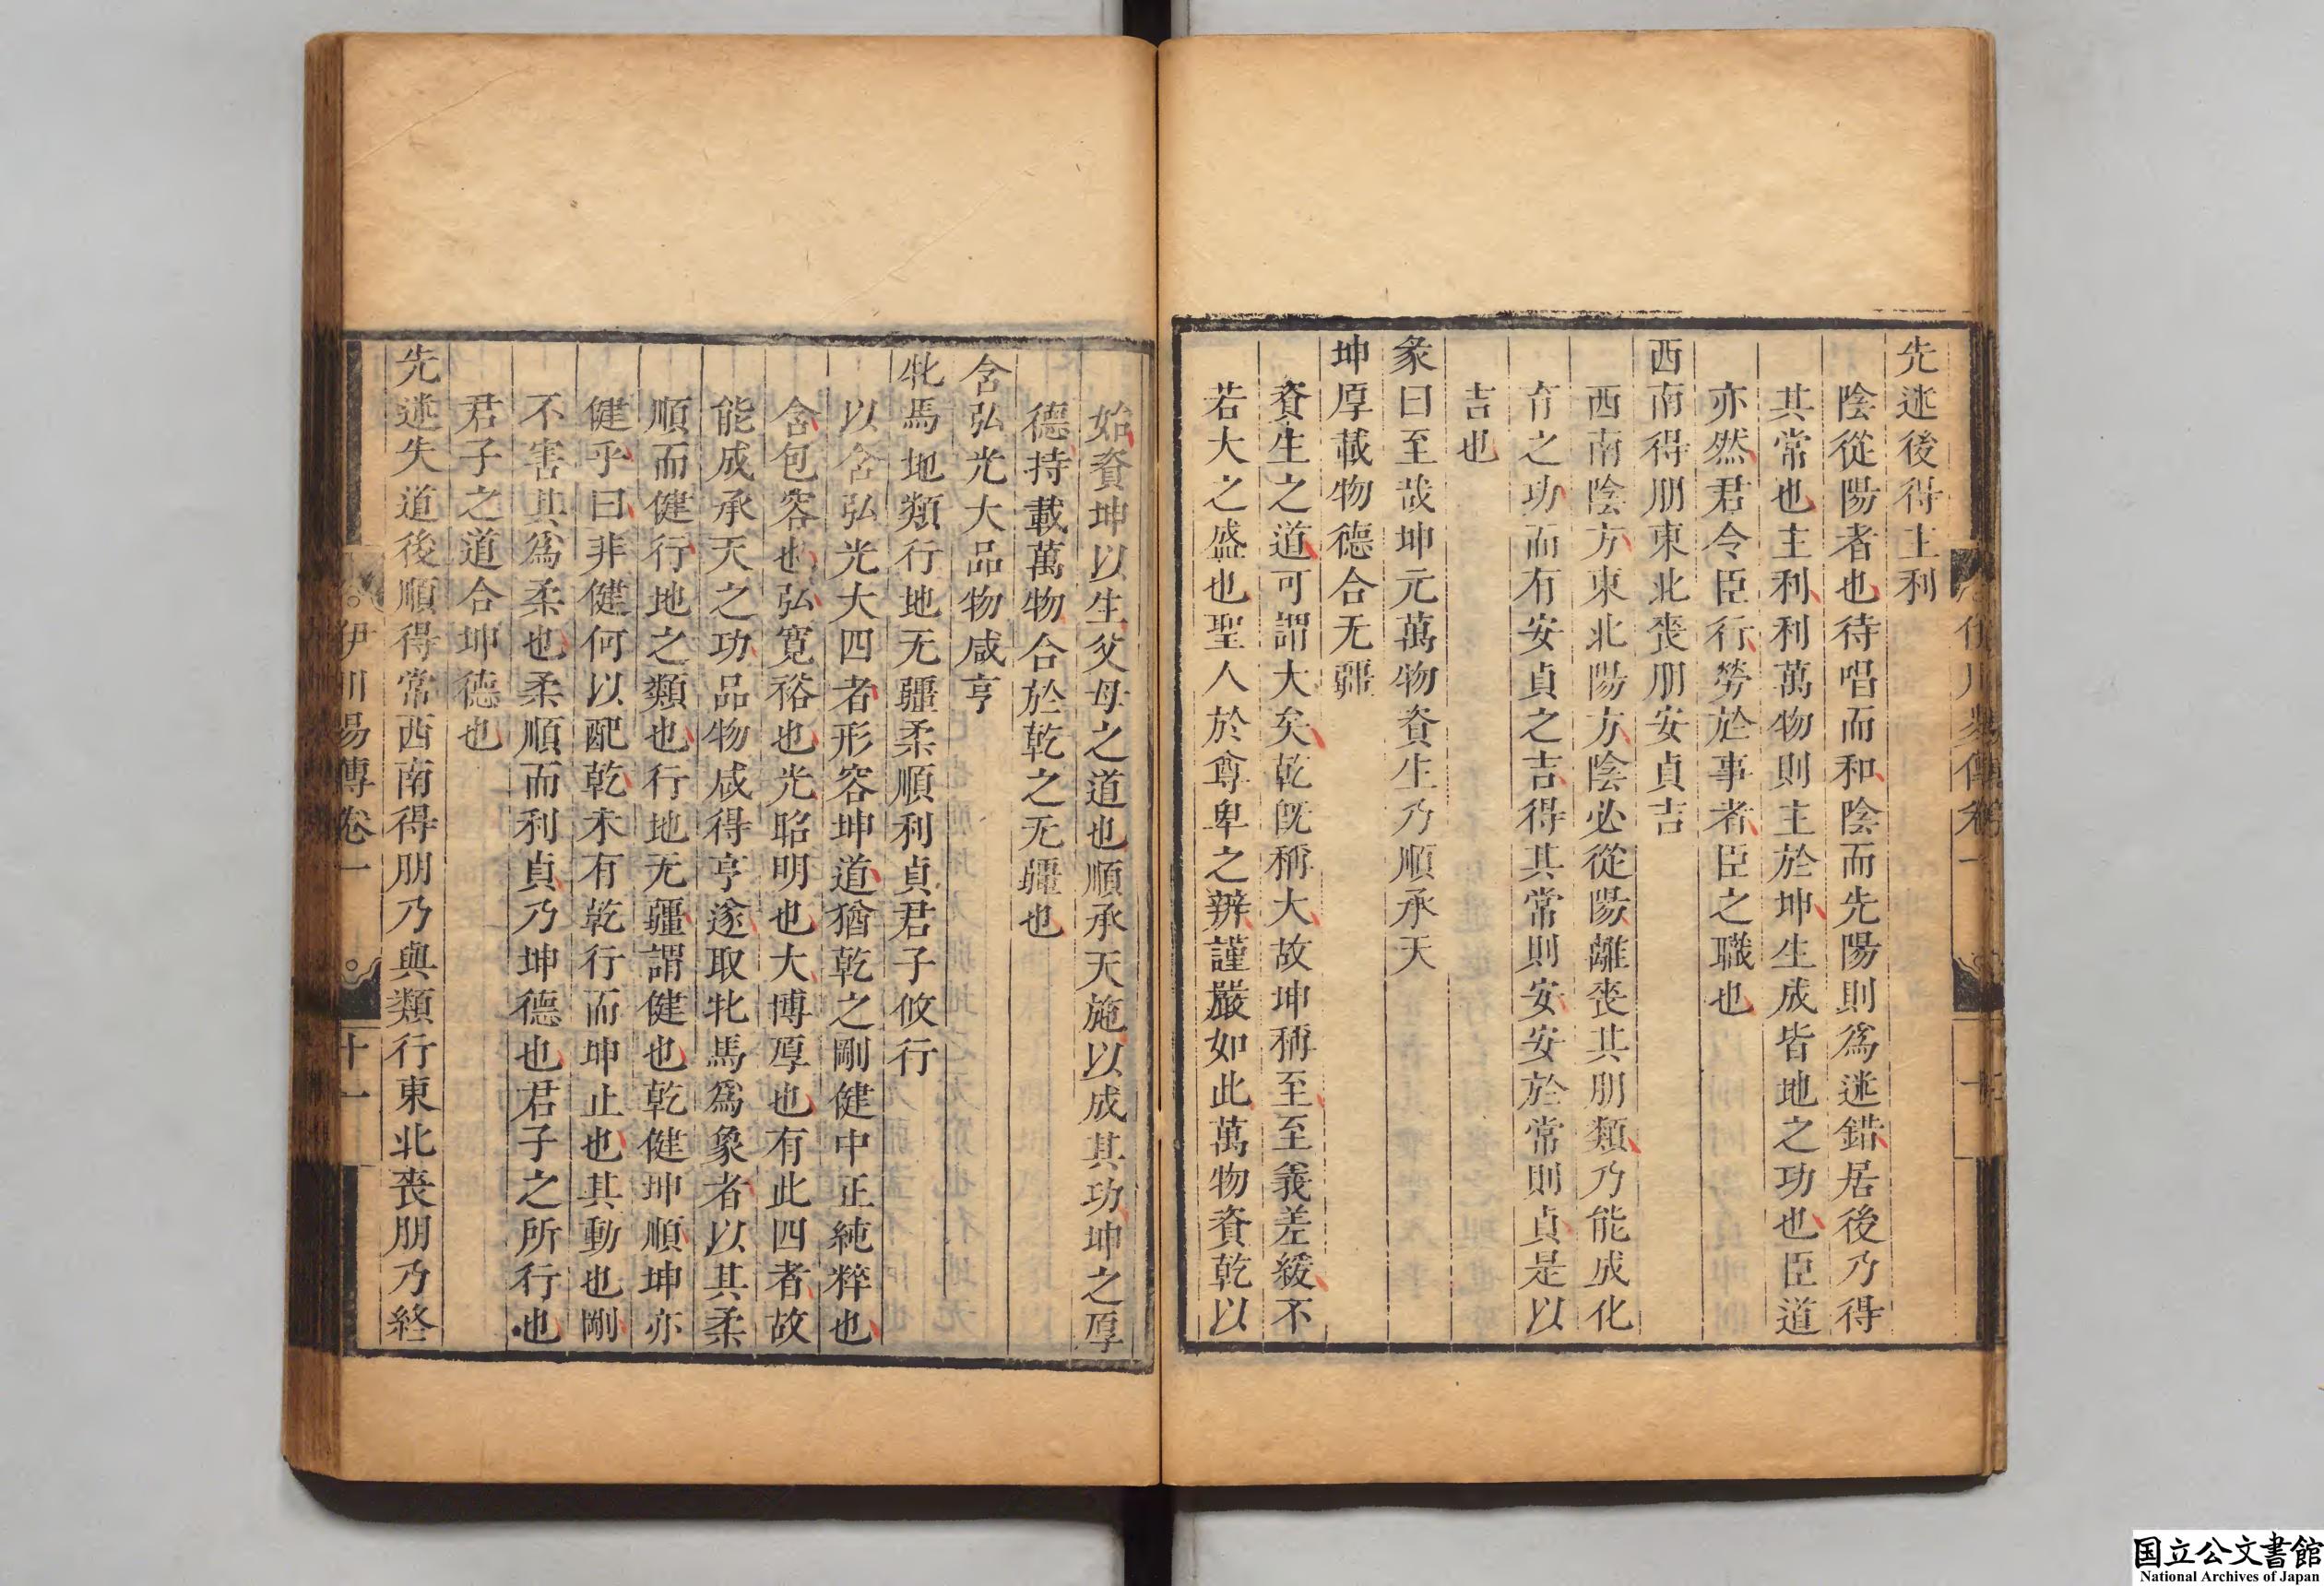 先迷後得主利
陰從陽者也待唱而和陰而先陽則爲迷錯居後乃得
其常也主利利萬物則主於坤生成皆地之功也臣道
亦然君令臣行勞於事者臣之職也
西南得朋東北喪朋安貞吉
西南陰方東北陽方陰必從陽離喪其朋類乃能成化
育之功而有安貞之吉得其常則安安於常則貞是以
吉也
彖曰至哉坤元萬物資生乃順承天
坤厚載物德合无疆
資生之道可謂大矣乾旣稱大故坤稱至至義差緩不
若大之盛也聖人於尊卑之辨謹嚴如此萬物資乾以
始資坤以生父母之道也順承天施以成其功坤之厚
德持載萬物合於乾之无疆也
含弘光大品物咸亨
牝馬地類行地无疆柔順利貞君子攸行
以含弘光大四者形容坤道猶乾之剛健中正純粹也
含包容也弘寛裕也光昭明也大博厚也有此四者故
能成承天之功品物咸得亨遂取牝馬爲象者以其柔
順而健行地之類也行地无疆謂健也乾健坤順坤亦
健乎曰非健何以配乾未有乾行而坤止也其動也剛
不害其爲柔也柔順而利貞乃坤德也君子之所行也
君子之道合坤德也
先迷失道後順得常西南得朋乃與類行東北喪朋乃終
伊川易傳卷一
十一
国立公文書館
National Archives of Japan